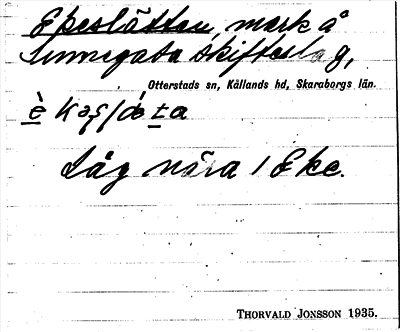 Ekeslätten, mark å
Sunnegata skifteslag,
Otterstads sn, Kållands hd, Skaraborgs län.
Låg nära 1 Eke.
THORVALD JONSSON 1935.